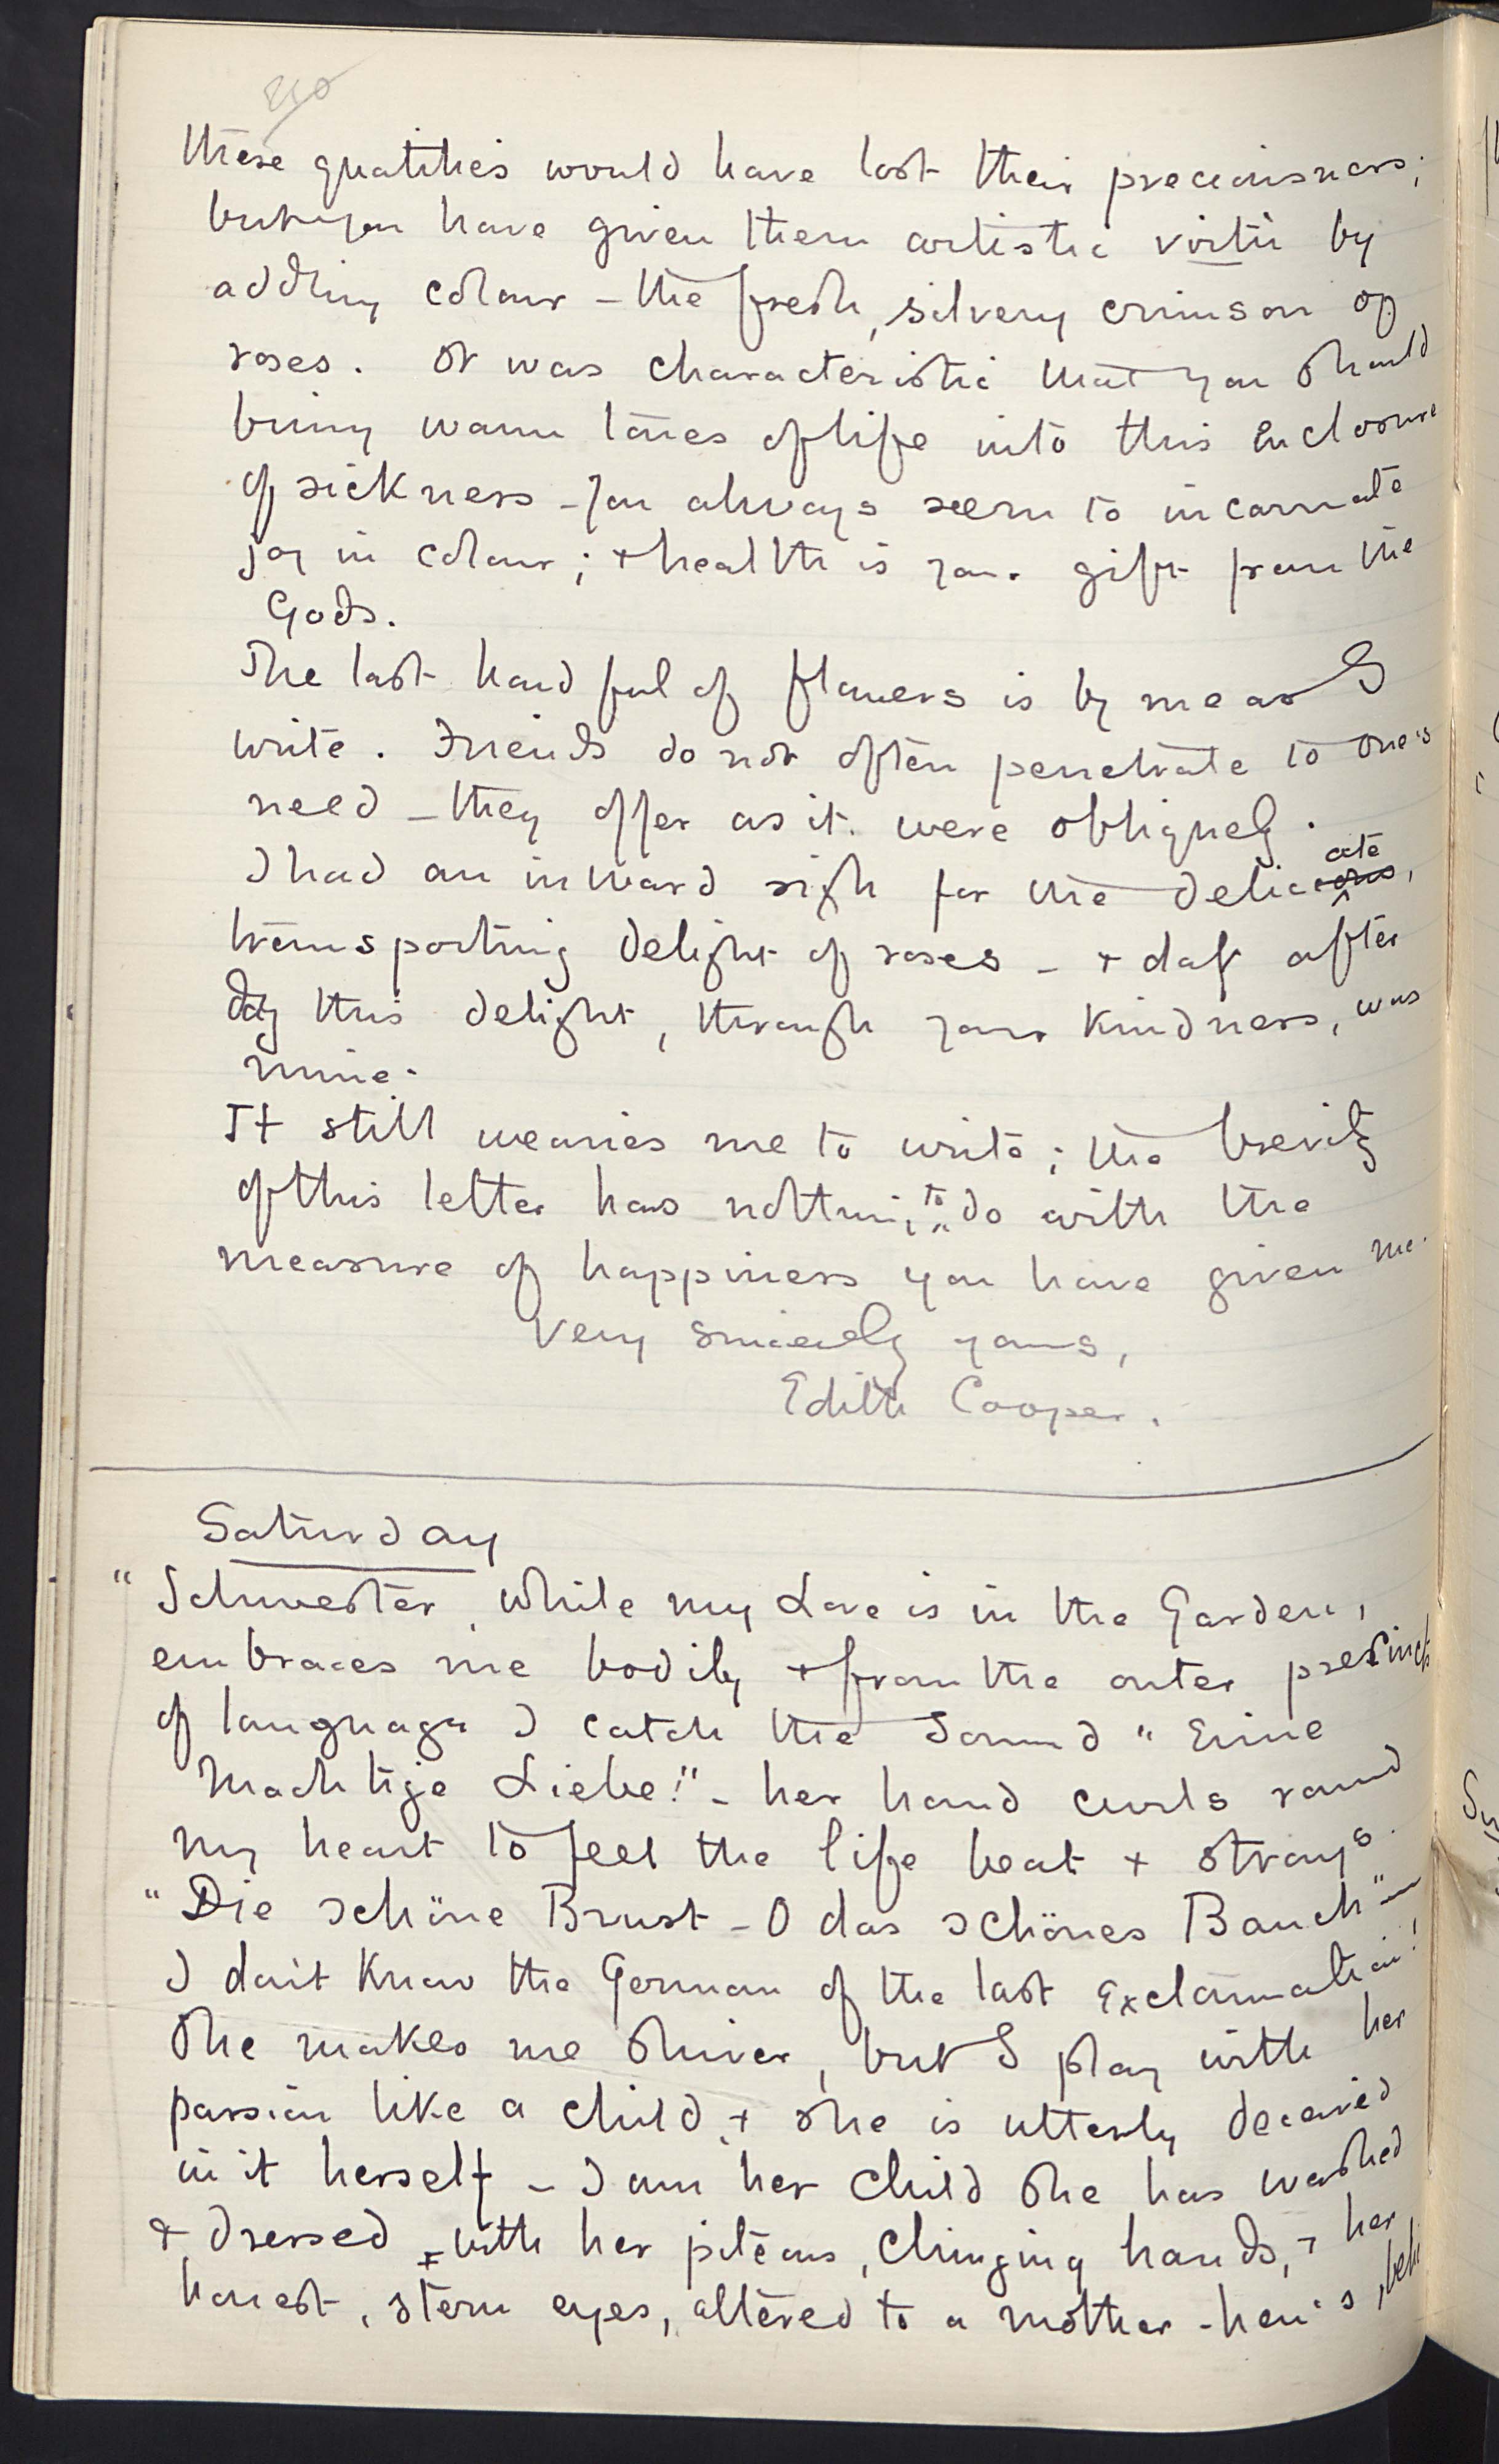 these qualities would have lost their preciousness;
but you have given them artistic virtù by
adding colour – the fresh, silvery crimson of
roses. It was characteristic that you should
bring warm tones of life into this enclosure
of sickness – you always seem to incarnate
joy in colour; + health is your gift from the
Gods.
The last handful of flowers is by me as I
write. Friends do not often penetrate to one's
need – they offer as it were obliquely.
I had an inward sigh for the delicate,
transporting delight of roses – + day after
day this delight, through your kindness, was
mine.
It still wearies me to write; the brevity
of this letter has nothing to do with the
measure of happiness you have given me.
Very sincerely yours,
Edith Cooper.
Saturday
"Schwester, while my Love is in the Garden,
embraces me bodily + from the outer precincts
of language I catch the sound "Eine
machtige Liebe!" – her hand curls round
my heart to feel the life beat + strays.
"Die schöne Brust – O das schönes Bauch" –
I don't know the German of the last exclamation!
She makes me shiver, but I play with her
passion like a child, + she is utterly deceived
in it herself – I am her child she has washed
+ dressed + with her piteous, clinging hands, + her
honest, stern eyes, altered to a mother-hen's,